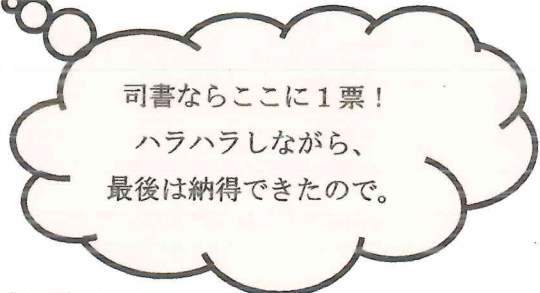 司書ならここに１票！
ハラハラしながら、
最後は納得できたので。